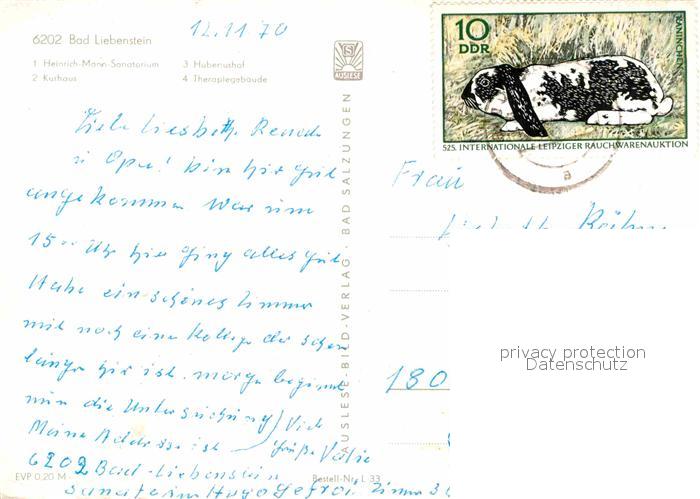 12.11.70
6202 Bad Liebenstein
1 Heinrich-Mann-Sanatorium
2 Kurhaus
3 Hubertushof
4 Therapiegebäude
AUSLESE
10
DDR
KANINCHEN
525. INTERNATIONALE LEIPZIGER RAUCHWARENAUKTION
Liebe Liesbeth, Renate
u Opa! Bin hir gut
angekommen War um
15 00 Uhr hir ging alles gut
Habe ein schönes Zimmer
mit noch eine Kollege der schon
länge hir ist. morge beginnt
nun die Untersuchung) Viel
Meine Addresse ist Grüße
6202 Bad-Liebenstein
Sanatorium Hugo Zimm
AUSLESE-BILD-VERLAG · BAD SALZUNGEN
Frau
180
privacy protection
Datenschutz
EVP 0,20 M
Bestell-Nr. L 33